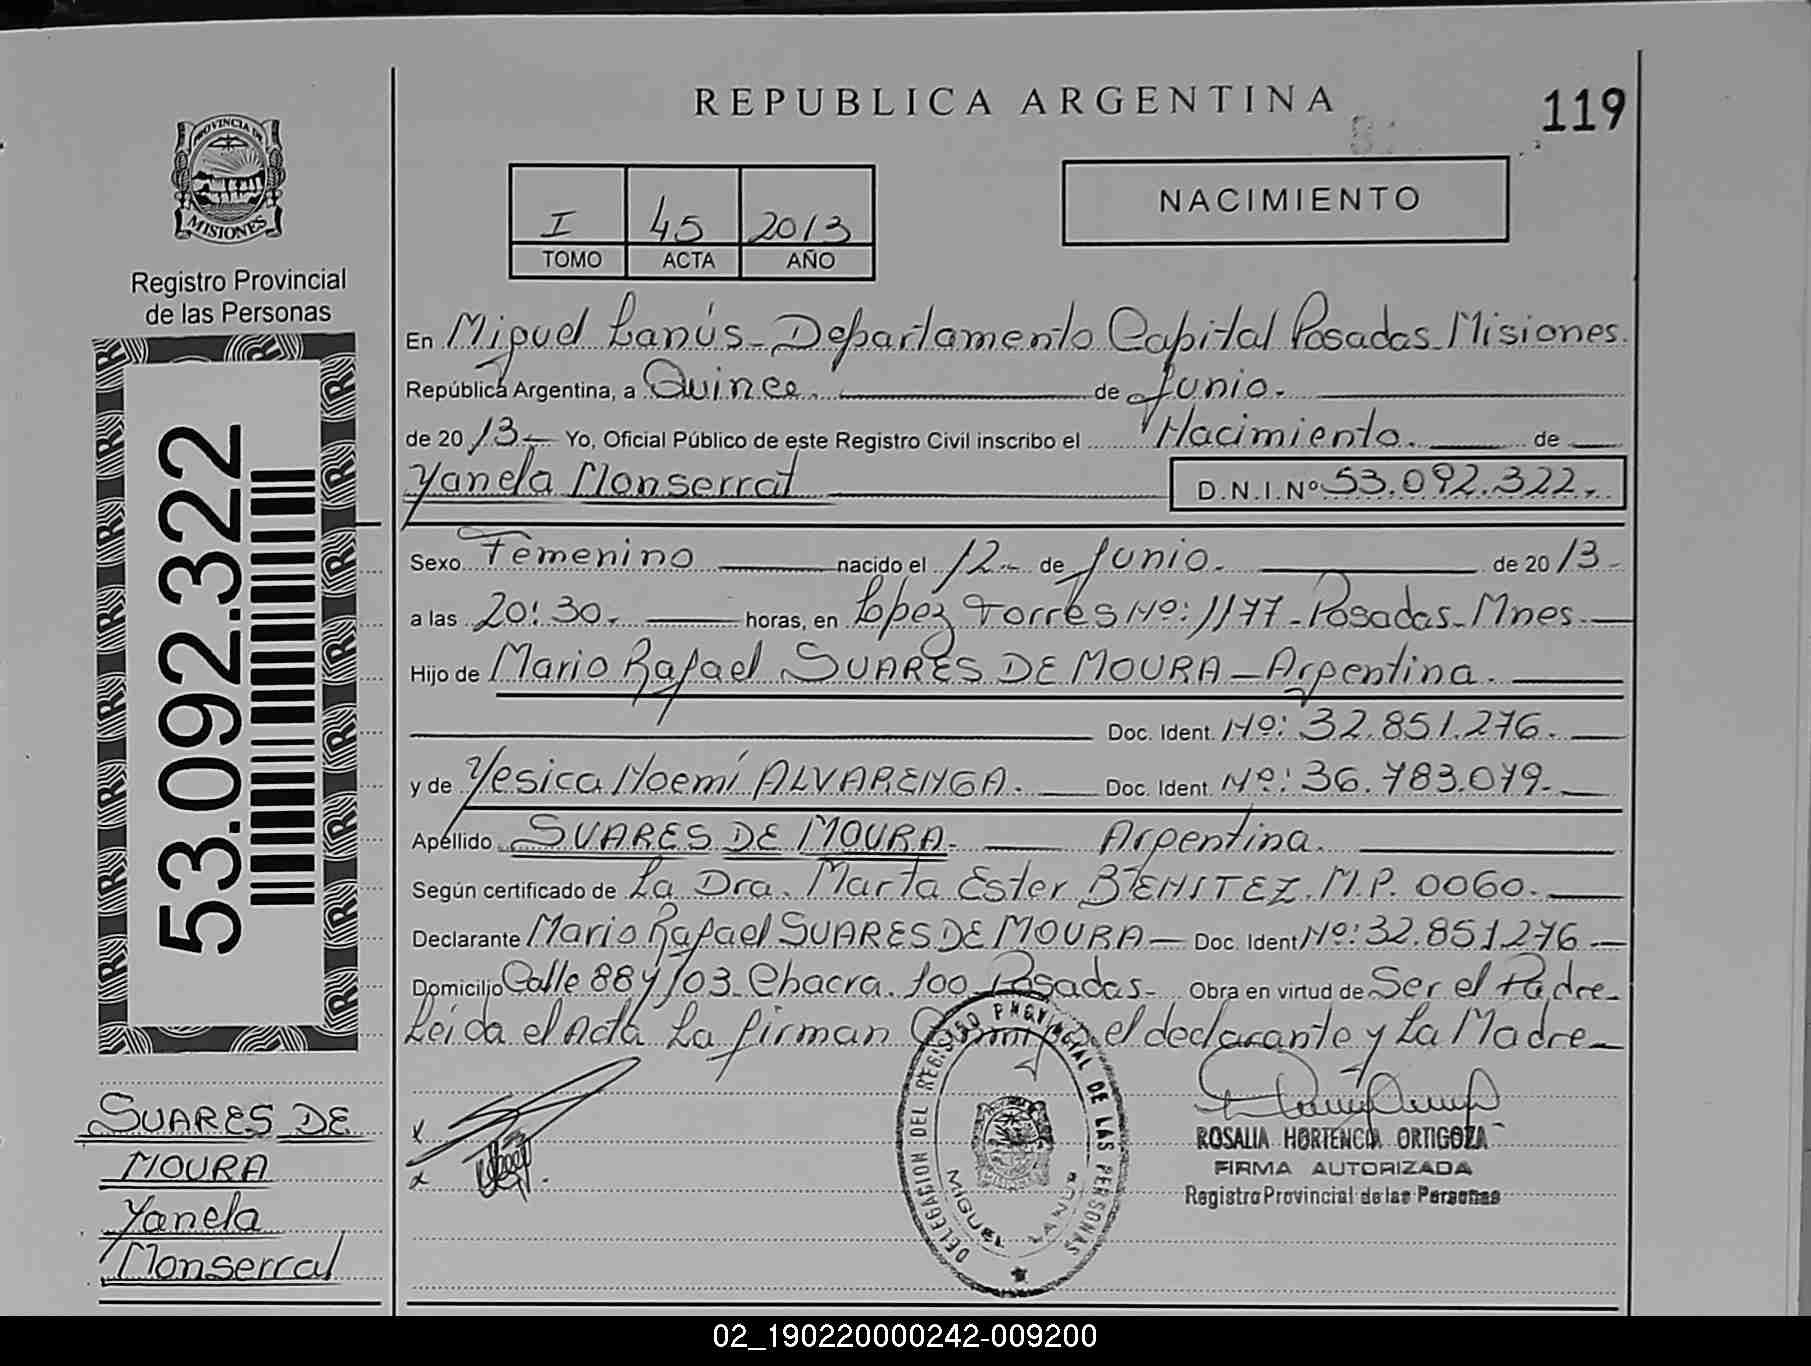 REPUBLICA ARGENTINA
119
PROVINCIA DE
MISIONES
Registro Provincial
de las Personas
I 45 2013
TOMO ACTA AÑO
NACIMIENTO
En Miguel Lanús - Departamento Capital Posadas - Misiones.
República Argentina, a Quince. de Junio.
de 2013 - Yo, Oficial Público de este Registro Civil inscribo el Nacimiento. de
Yanela Monserrat D.N.I.Nº 53.092.322.
Sexo Femenino nacido el 12 - de Junio. de 2013 -
a las 20:30. horas, en Lopez Torres Nº: 1177 - Posadas - Mnes.
Hijo de Mario Rafael SUARES DE MOURA - Argentina.
Doc. Ident. Nº: 32.851.276.
y de Yesica Noemí ALVARENGA. Doc. Ident. Nº: 36.783.079.
Apellido SUARES DE MOURA. Argentina.
Según certificado de La Dra. Marta Ester BENITEZ. M.P. 0060.
Declarante Mario Rafael SUARES DE MOURA - Doc. Ident Nº: 32.851276 -
Domicilio Calle 88 y 103 - Chacra. 100 Posadas - Obra en virtud de Ser el Padre -
Leida el Acta La firman Conmigo el declarante y La Madre -
53.092.322
SUARES DE
MOURA
Yanela
Monserrat
x
x
DELEGACION DEL REGISTRO PROVINCIAL DE LAS PERSONAS
MIGUEL LANUS
ROSALIA HORTENCIA ORTIGOZA
FIRMA AUTORIZADA
Registro Provincial de las Personas
02_190220000242-009200